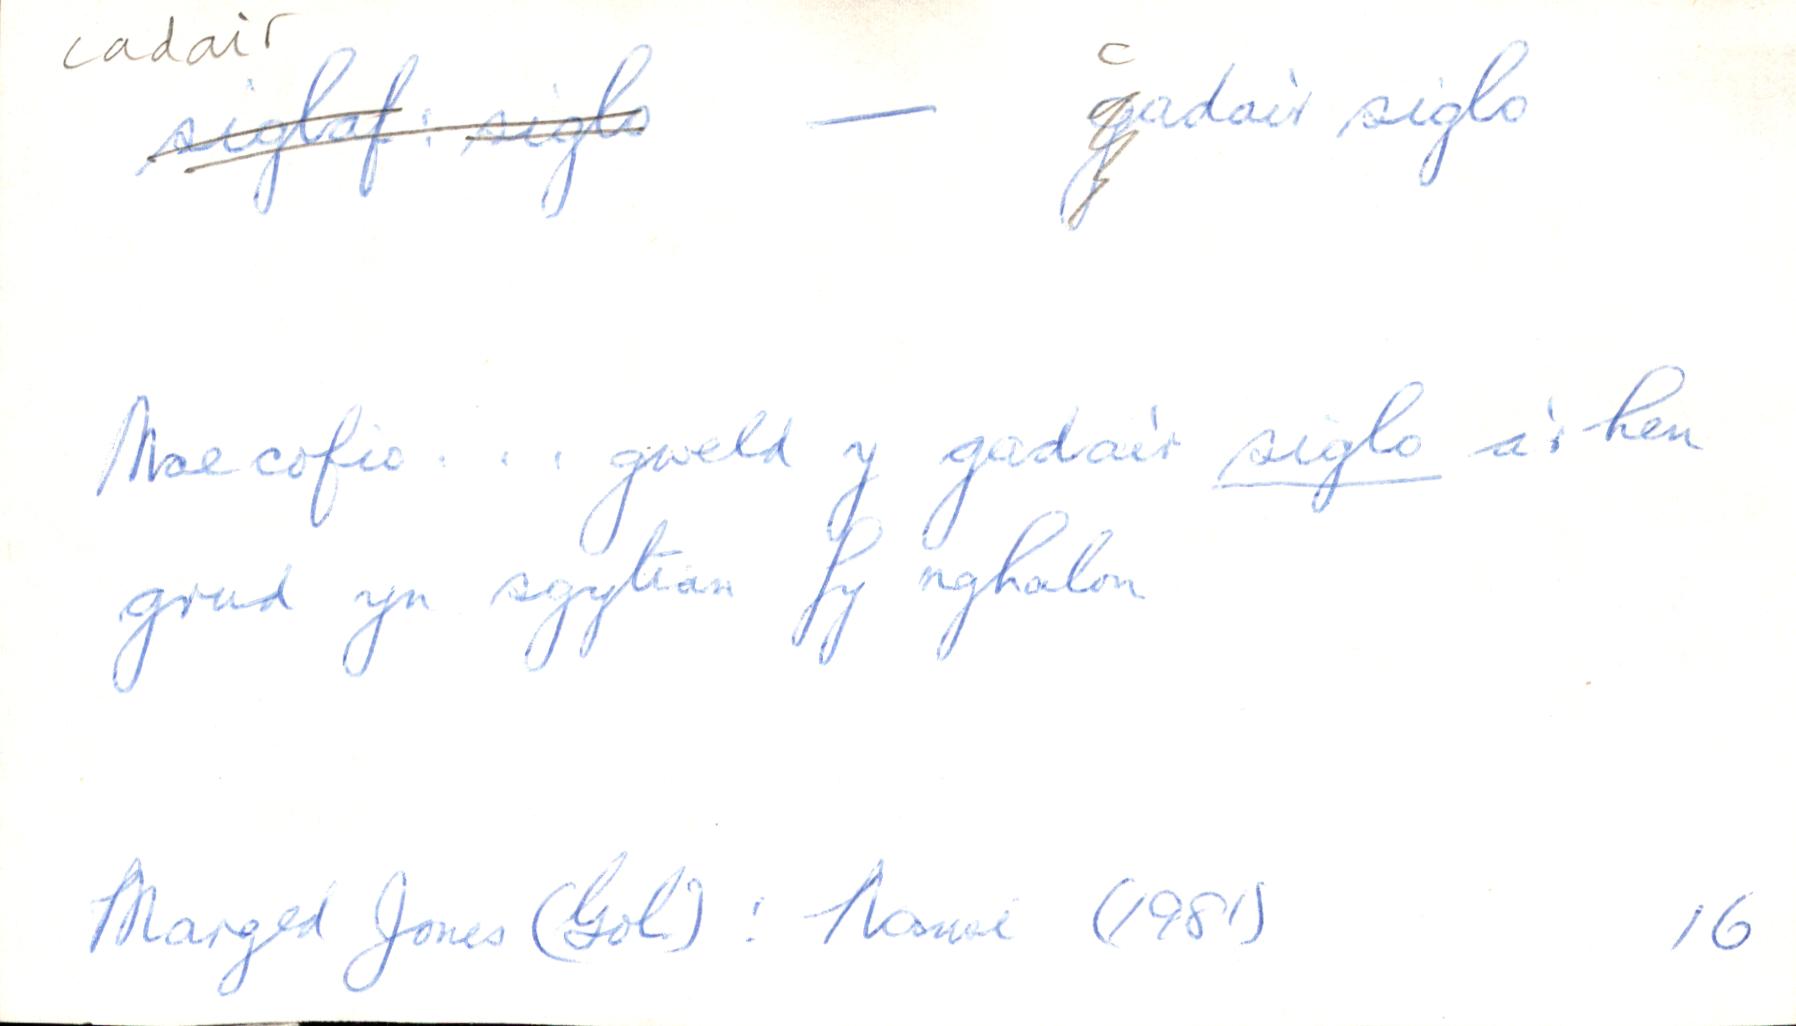 cadair
siglaf: siglo — cadair siglo
Mae cofio . . . gweld y gadair siglo a'r hen
grud yn sgytian fy nghalon
Marged Jones (Gol.): Nansi (1981) 16